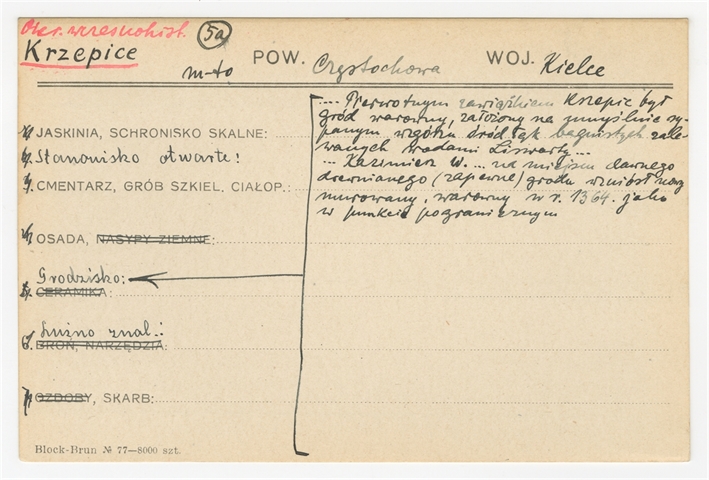 Okr. wczesnohist. 5a
Krzepice m-to POW. Częstochowa WOJ. Kielce
1/ JASKINIA, SCHRONISKO SKALNE:
2/ Stanowisko otwarte:
3/ CMENTARZ, GRÓB SZKIEL. CIAŁOP.:
4/ OSADA, NASYPY ZIEMNE:
Grodzisko:
5/ CERAMIKA:
Luźno znal.:
6/ BROŃ, NARZĘDZIA:
7/ OZDOBY, SKARB:
.... Pierwotnym zawiązkiem Krzepic był
gród warowny, założony na umyślnie sy-
panym wzgórzu śród łąk bagnistych zale-
wanych wodami Liswarty...
... Kazimierz W. ... na miejscu dawnego
drewnianego (zapewne) grodu wzniósł nowy
murowany, warowny w r. 1364. jako
w punkcie pogranicznym
Block-Brun № 77—8000 szt.